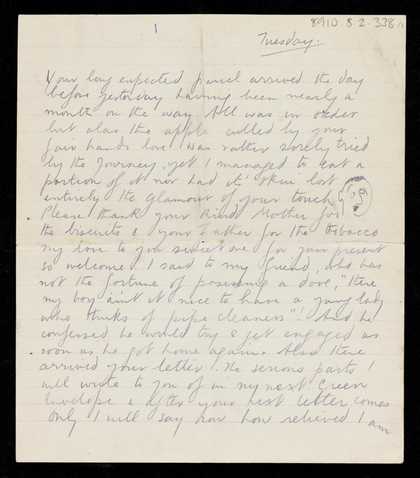 1
8910-8-2-338
Tuesday.
Your long expected parcel arrived the day
before yesterday having been nearly a
month on the way. All was in order
but alas the apple culled by your
fair hands love was rather sorely tried
by the journey, yet I managed to eat a
portion of it nor had its skin lost
entirely the glamour of your touch
Please thank your kind Mother for
the biscuits & your Father for the tobacco
my love to you sweet one for your present
so welcome. I said to my friend, who has
not the fortune of possessing a dove, "There
my boy ain't it nice to have a young lady
who thinks of pipe cleaners"! And he
confessed he would try & get engaged as
soon as he got home again. Also there
arrived your letter. The serious parts I
will write to you of in my next Green
Envelope & after your next letter comes
Only I will say now how relieved I am